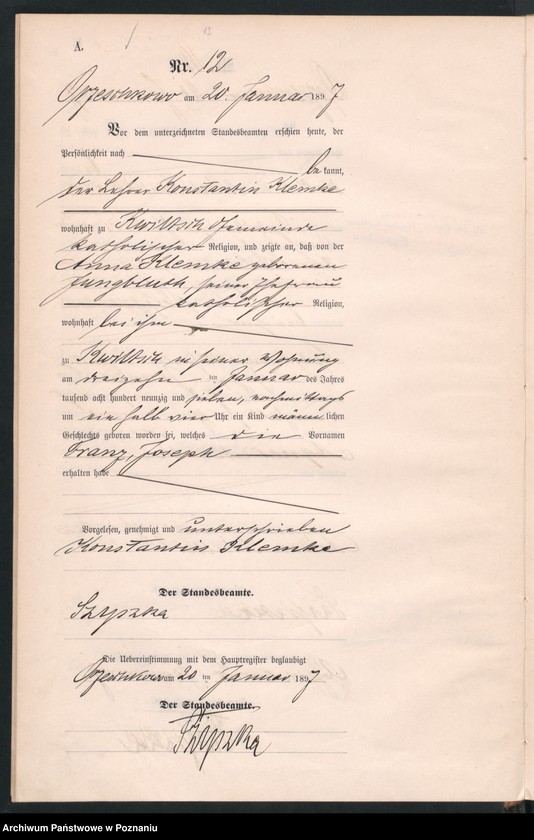 A.
12
Nr. 12
Orzeschkowo am 20. Januar 1897
Vor dem unterzeichneten Standesbeamten erschien heute, der
Persönlichkeit nach
be kannt,
der Lehrer Konstantin Klemke
wohnhaft zu Kwiltsch Gemeinde
katholischer Religion, und zeigte an, daß von der
Anna Klemke geborenen
Jungbluth, seiner Ehefrau
katholischer Religion,
wohnhaft bei ihm
zu Kwiltsch in seiner Wohnung
am dreizehn ten Januar des Jahres
tausend acht hundert neunzig und sieben, nachmittags
um ein halb vier Uhr ein Kind männ lichen
Geschlechts geboren worden sei, welches die Vornamen
Franz, Joseph
erhalten habe
Vorgelesen, genehmigt und unterschrieben
Konstantin Klemke
Der Standesbeamte.
Szyszka
Die Uebereinstimmung mit dem Hauptregister beglaubigt
Orzeschkowo am 20 ten Januar 1897
Der Standesbeamte.
Szyszka
Archiwum Państwowe w Poznaniu